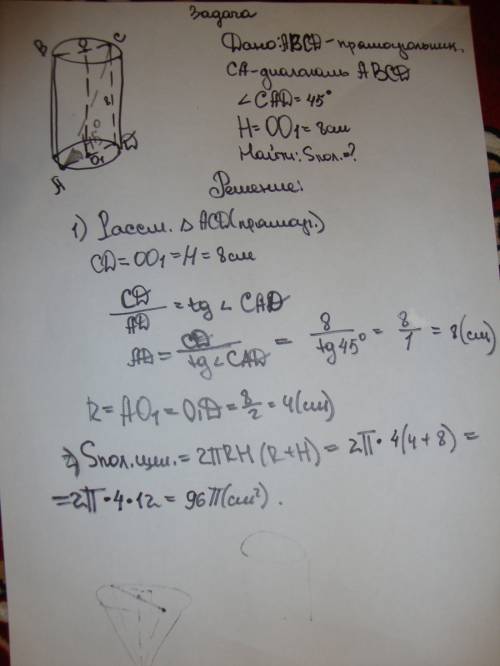 Задача
Дано: ABCD - прямоугольник,
CA - диагональ ABCD
∠CAD = 45°
H = OO₁ = 8 см
Найти: Sпол. = ?
B O C
8
A O₁ D
Решение:
1) Рассм. △ ACD (прямоуг.)
CD = OO₁ = H = 8 см
CD/AD = tg ∠ CAD
AD = CD/tg ∠ CAD = 8/tg 45° = 8/1 = 8 (см)
R = AO₁ = O₁D = 8/2 = 4 (см)
2) Sпол. цил. = 2πRH (R + H) = 2π · 4 (4 + 8) =
= 2π · 4 · 12 = 96π (см²).